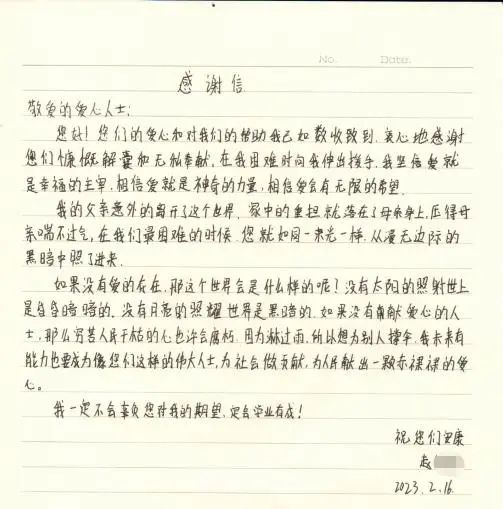 No. Date.
感谢信
敬爱的爱心人士:
您好!您们的爱心和对我们的帮助我已如数收致到.衷心地感谢
您们慷慨解囊和无私奉献,在我困难时向我伸出援手,我坚信爱就
是幸福的主宰,相信爱就是神奇的力量,相信爱会有无限的希望.
我的父亲意外的离开了这个世界.家中的重担就落在了母亲身上,压得母
亲喘不过气,在我们最困难的时候.您就如同一束光一样,从漫无边际的
黑暗中照了进来.
如果没有爱的存在,那这个世界会是什么样的呢?没有太阳的照射世上
是昏昏暗暗的,没有月亮的照耀世界是黑暗的.如果没有奉献爱心的人
士,那么穷苦人民干枯的心也许会腐朽.因为淋过雨,所以想为别人撑伞,我未来有
能力也要成为像您们这样的伟大人士,为社会做贡献,为人民献出一颗赤裸裸的爱
心。
我一定不会辜负您对我的期望,定会学业有成!
祝您们安康
赵
2023.2.16.